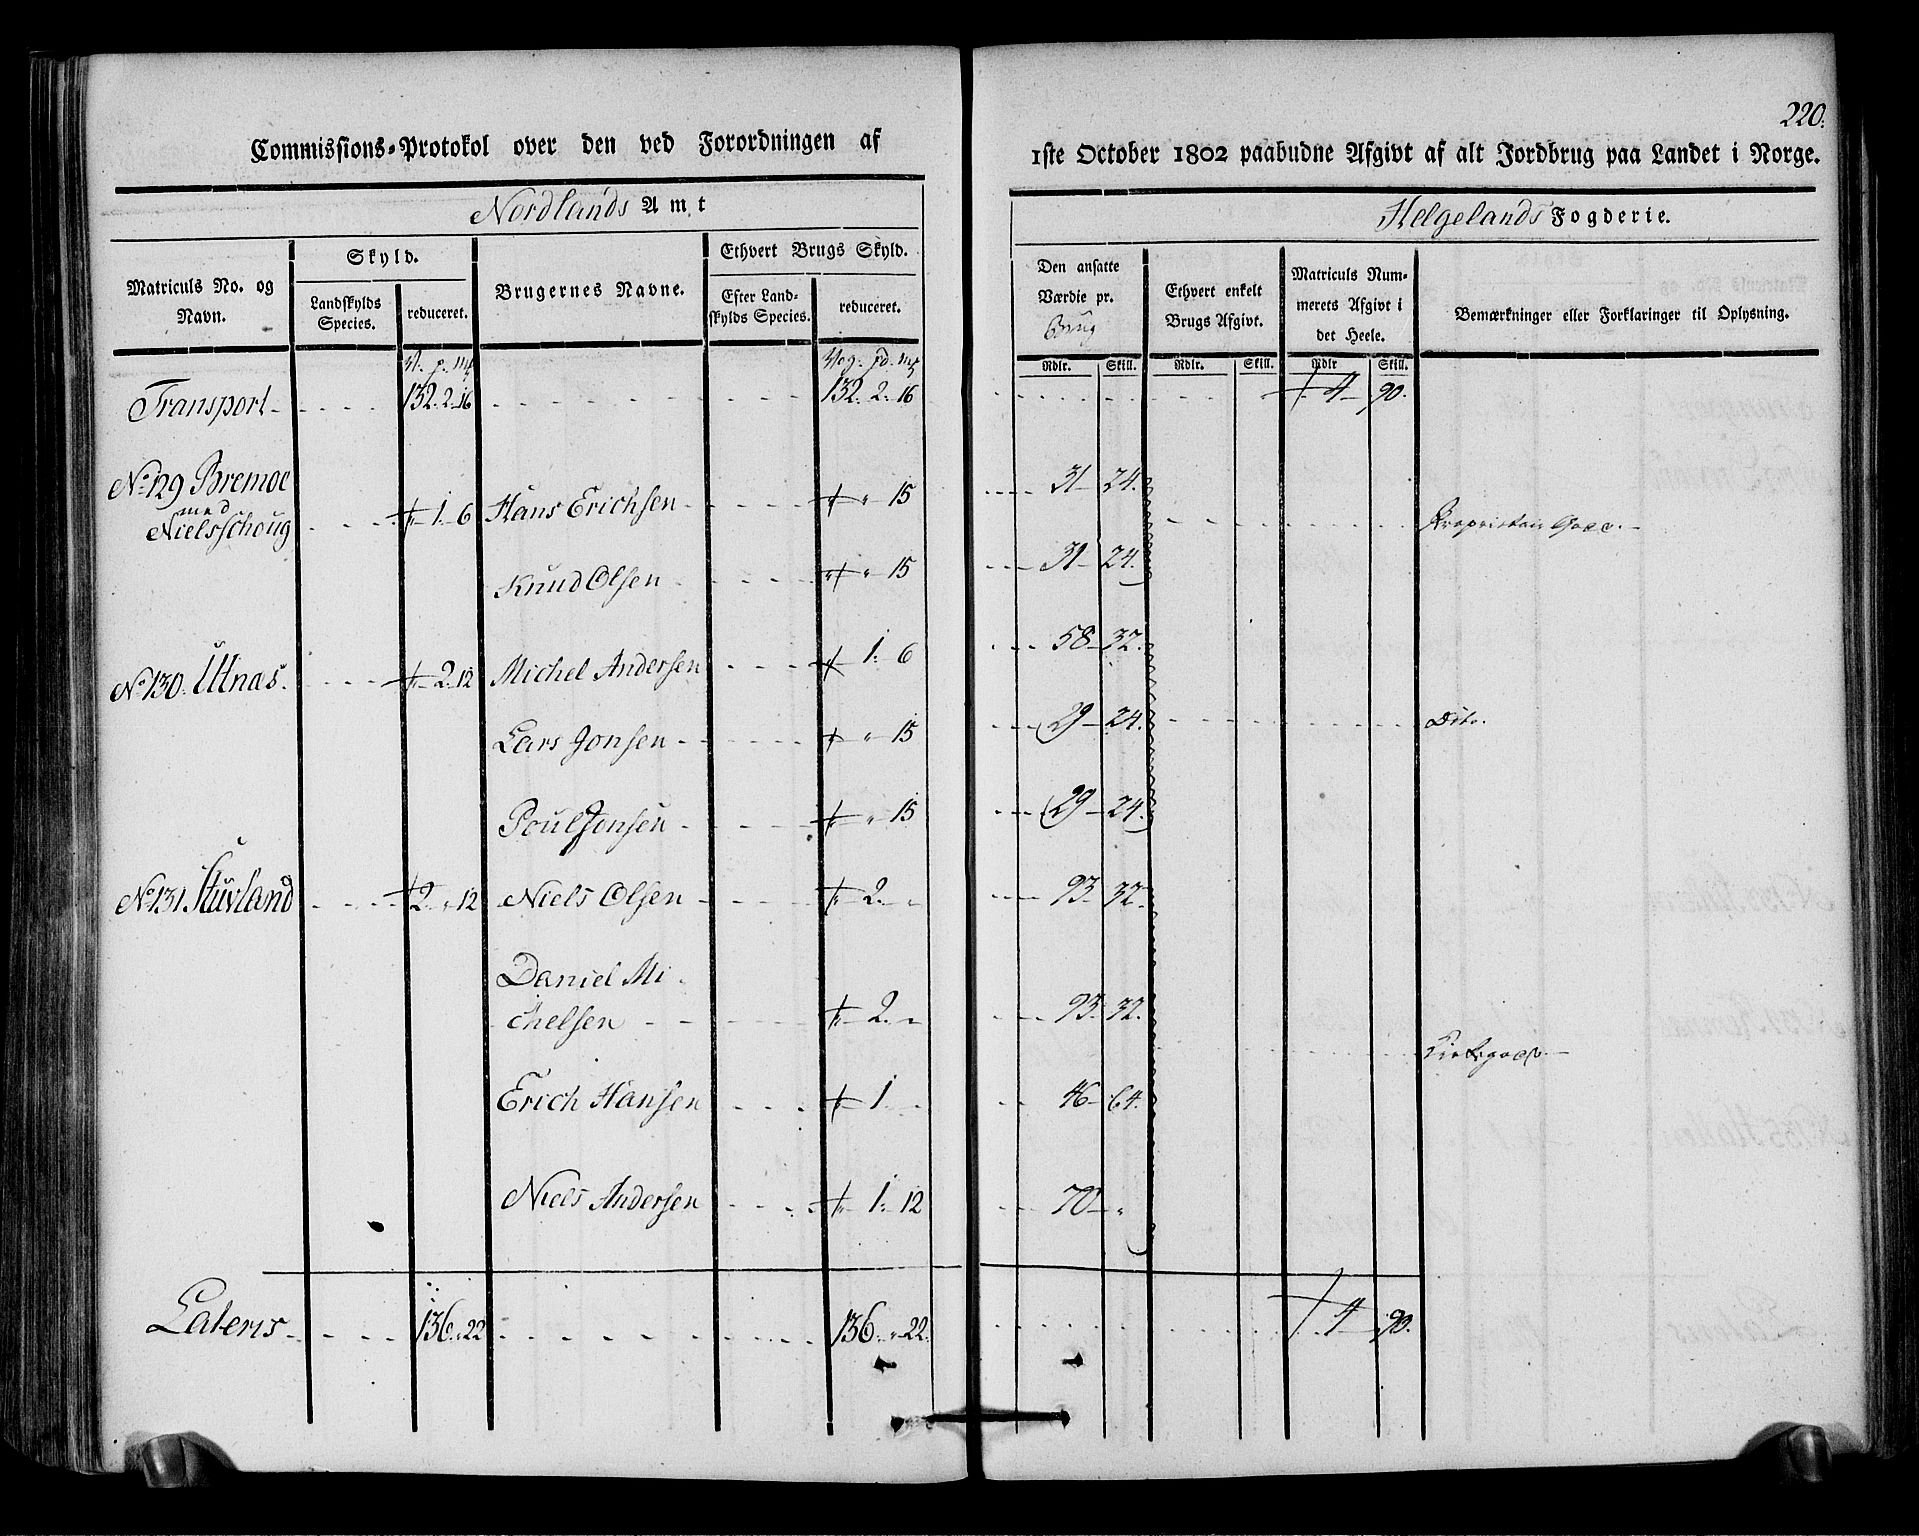 220.
Commissions-Protokol over den ved Forordningen af 1ste October 1802 paabudne Afgivt af alt Jordbrug paa Landet i Norge.
Nordlands Amt
Helgelands Fogderie.
Matriculs No. og Navn.
Skyld.
Landskylds Species.
reduceret.
Brugernes Navne.
Ethvert Brugs Skyld.
Efter Landskylds Species.
reduceret.
Den ansatte Værdie pr. Brug
Ethvert enkelt Brugs Afgivt.
Matriculs Nummerets Afgivt i det Heele.
Bemærkninger eller Forklaringer til Oplysning.
Rdlr. Skill. Rdlr. Skill. Rdlr Skill.
Transport 132. 2. 16 132. 2. 16 4 90.
No 129 Bremoe
med
Nielsschoug 1. 6 Hans Erichsen " 15 31 24. Proprietair Gods.
Knud Olsen " 15 31 24.
No 130. Utnæs. 2. 12 Michel Andersen 1. 6 58 32.
Lars Jonsen " 15 29 24. Dito.
Poul Jonsen " 15 29 24.
No 131. Stuvland 2 " 12 Niels Olsen 2. " 93 32.
Daniel Mi-
chelsen 2. " 93 32.
Kirkegods.
Erich Hansen 1 " 46 64.
Niels Andersen 1. 12 70 "
Lateris 136. " 22 136. " 22. 4 90.